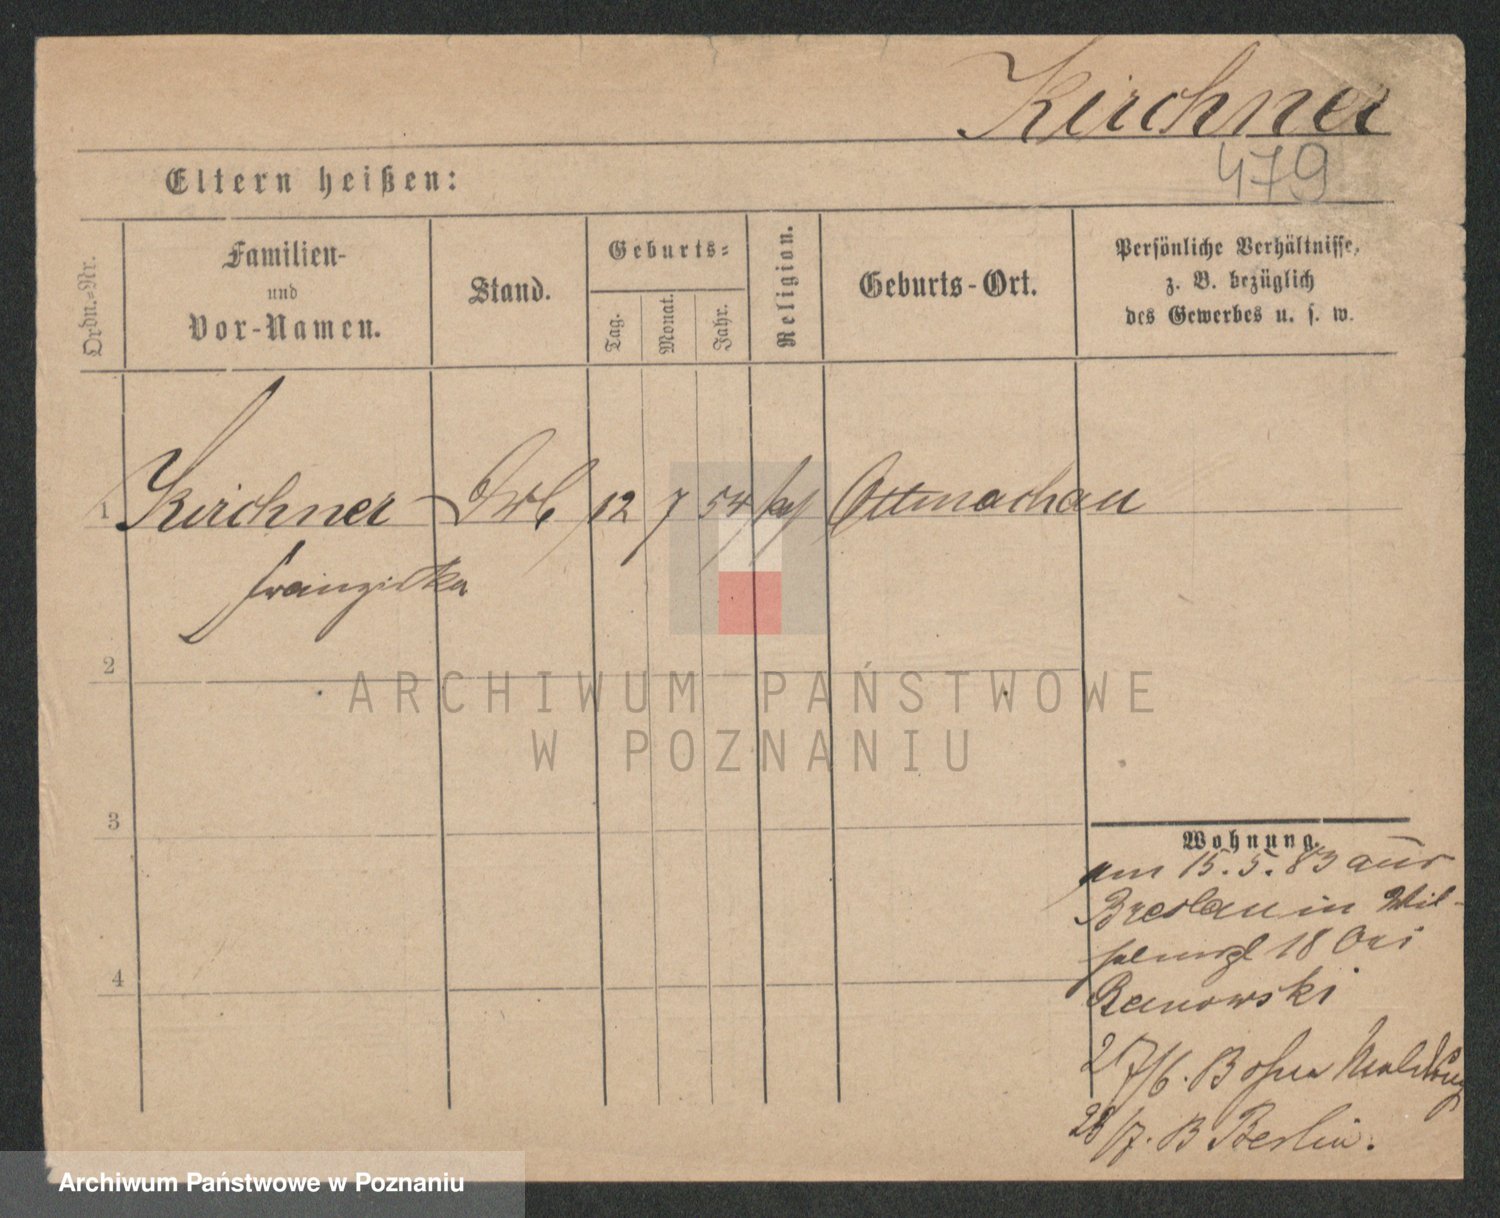 Kirchner
479
Eltern heißen:
Ordn.-Nr.
Familien-
und
Vor-Namen.
Stand.
Geburts-
Tag.
Monat.
Jahr.
Religion.
Geburts-Ort.
Persönliche Verhältnisse,
z. B. bezüglich
des Gewerbes u. s. w.
1 Kirchner 12 7 54 Ottmachau
Franziska
2
3
4
Wohnung.
am 15.5.83 aus
Breslau in Wil-
18 bei
27/6. B ohne Meldung
28/7. B Berlin.
ARCHIWUM PAŃSTWOWE
W POZNANIU
Archiwum Państwowe w Poznaniu